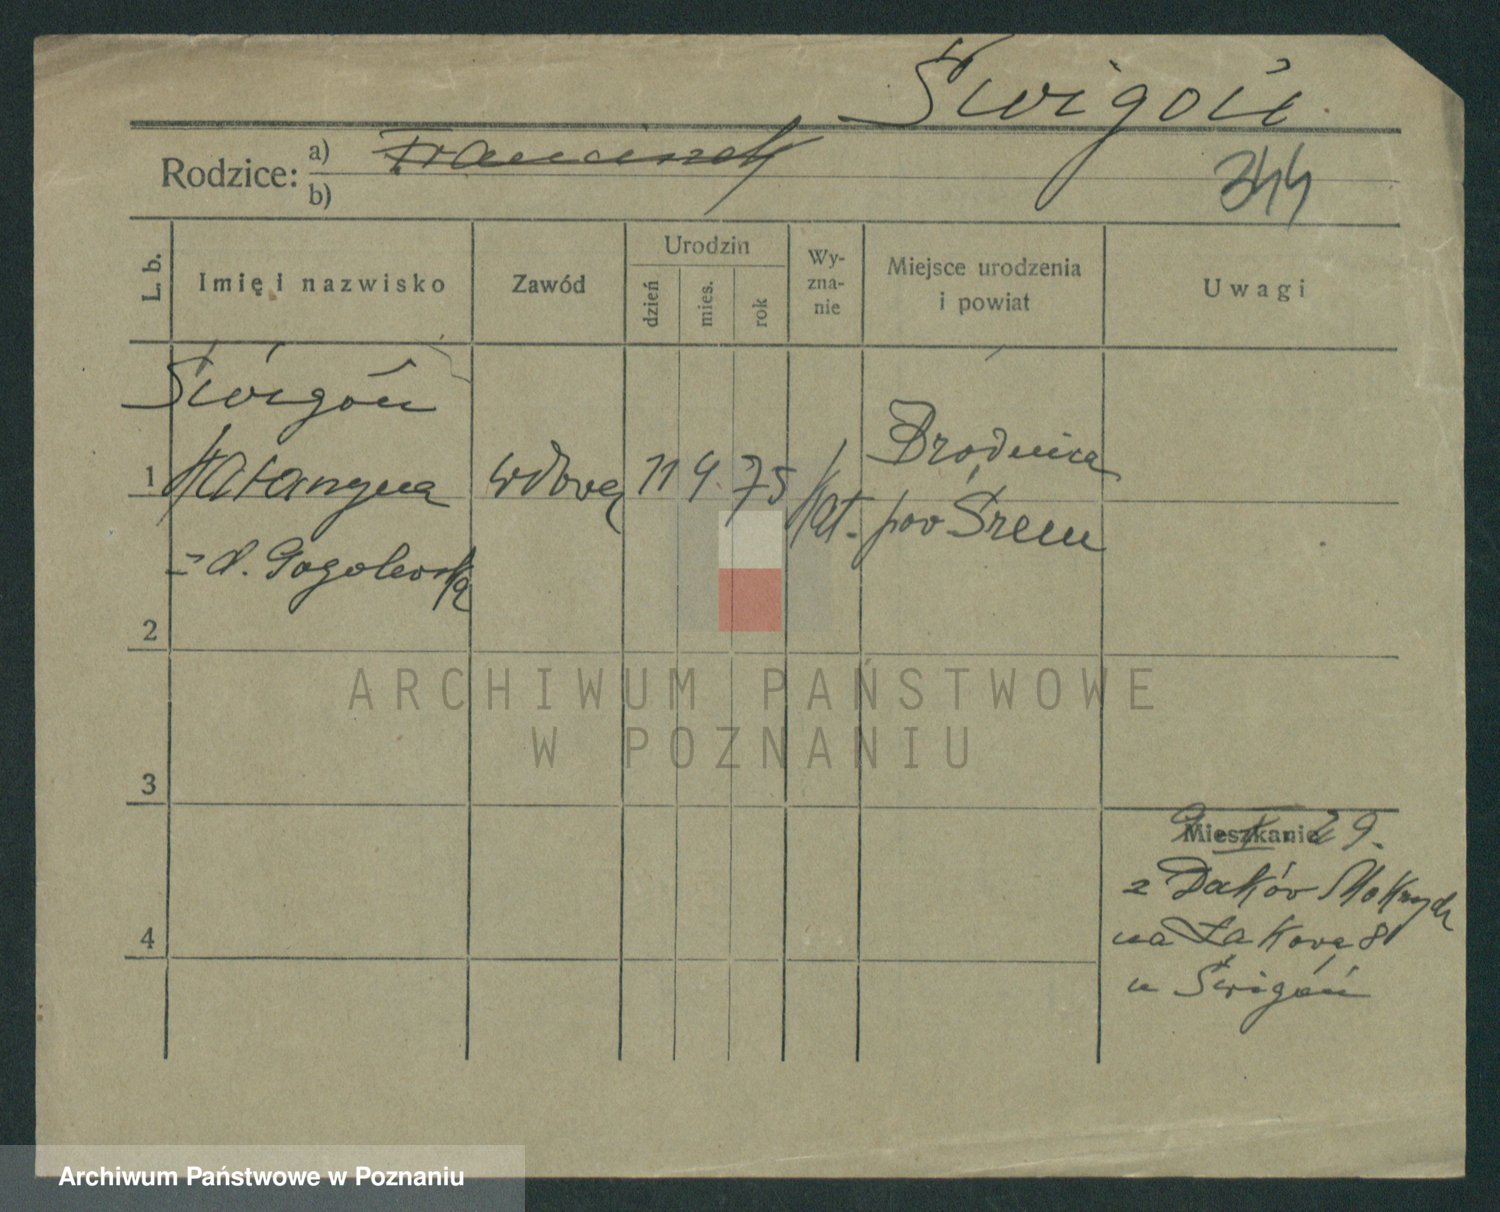 Świgoń
Rodzice: a) Franciszek
b)
344
L. b.
Imię i nazwisko
Zawód
Urodzin
dzień
mies.
rok
Wy-
zna-
nie
Miejsce urodzenia
i powiat
Uwagi
Świgoń
1 Katarzyna wdowa 11 4. 75 kat. Brodnica
pow Śrem
z d. Gogolewska
2
3
4
Mieszkanie
9 X 29.
z Daków Mokrych
na Łąkową 8
u Świgoń
ARCHIWUM PAŃSTWOWE
W POZNANIU
Archiwum Państwowe w Poznaniu